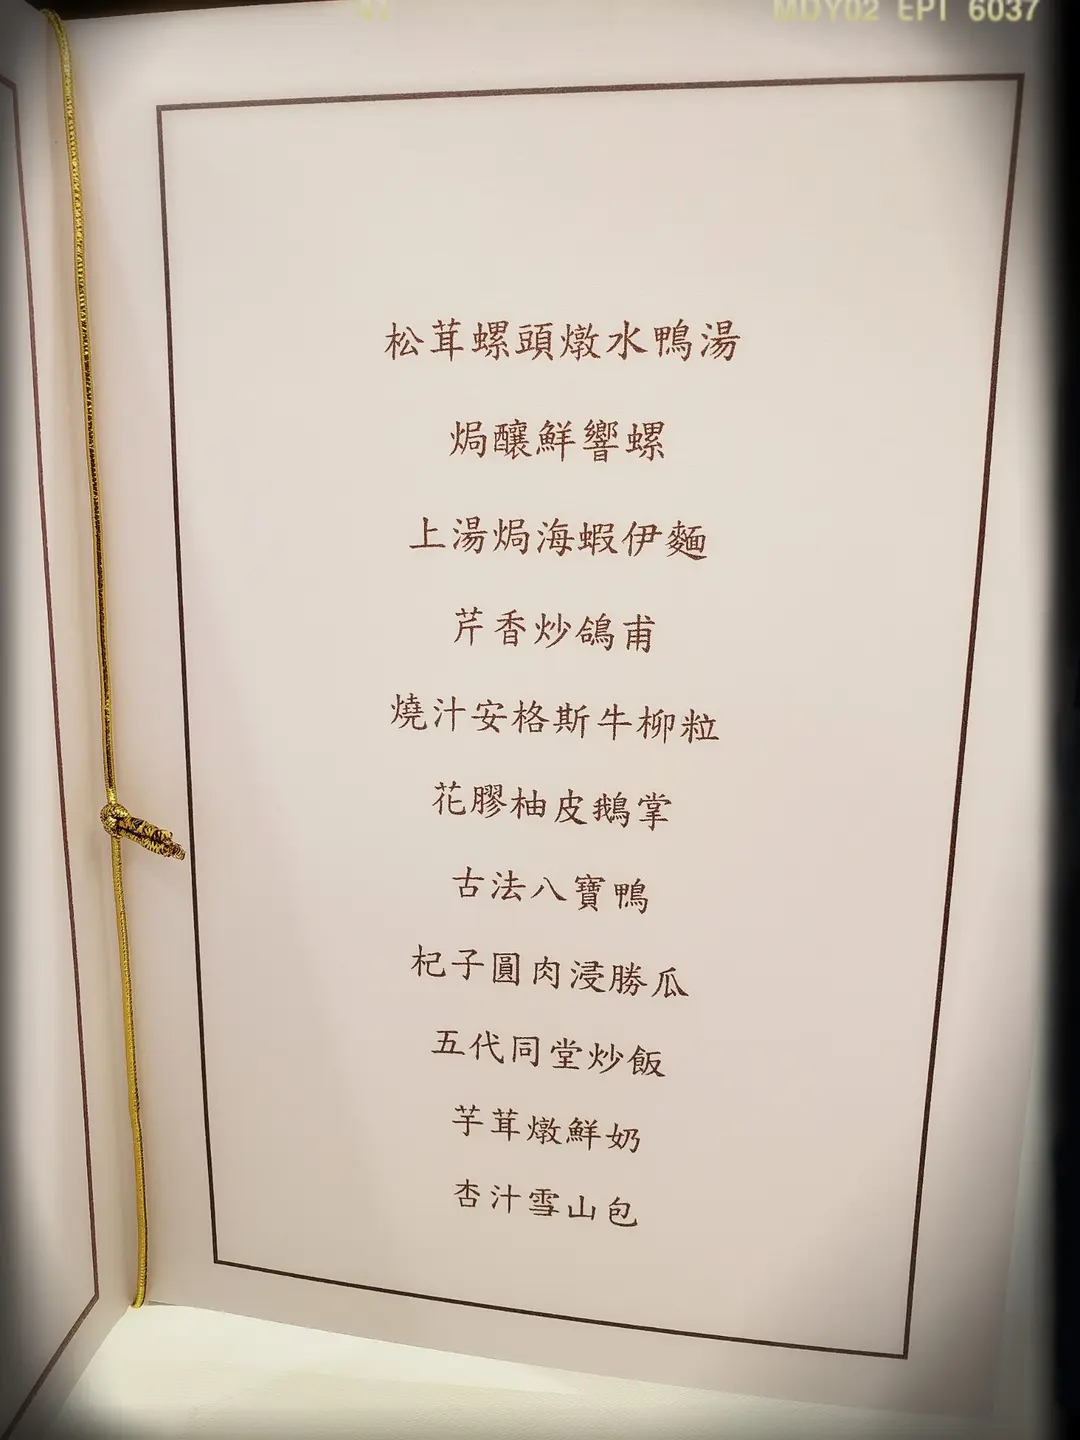 MDY02 EPI 6037
松茸螺頭燉水鴨湯
焗釀鮮響螺
上湯焗海蝦伊麵
芹香炒鴿甫
燒汁安格斯牛柳粒
花膠柚皮鵝掌
古法八寶鴨
杞子圓肉浸勝瓜
五代同堂炒飯
芋茸燉鮮奶
杏汁雪山包